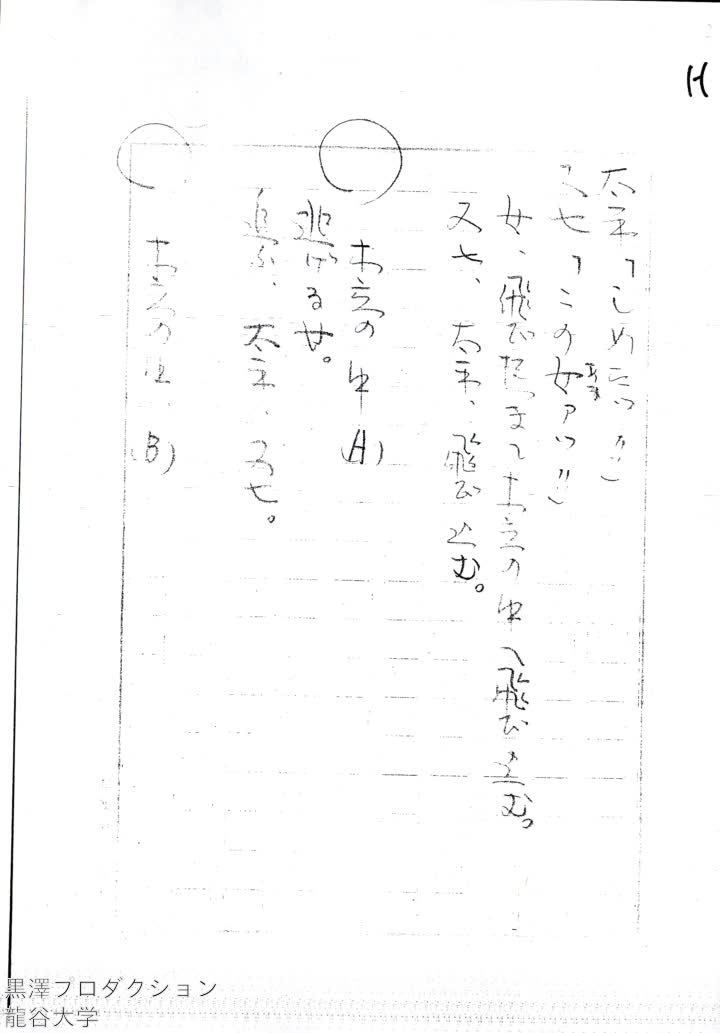 H
太平「しめたッ!!」
又七「この女ァッ!!」
女、飛び起きて木立の中へ飛び込む。
又七、太平、飛び込む。
木立の中(A)
逃げる女。
追ふ、太平、又七。
木立の中(B)
黒澤プロダクション
龍谷大学